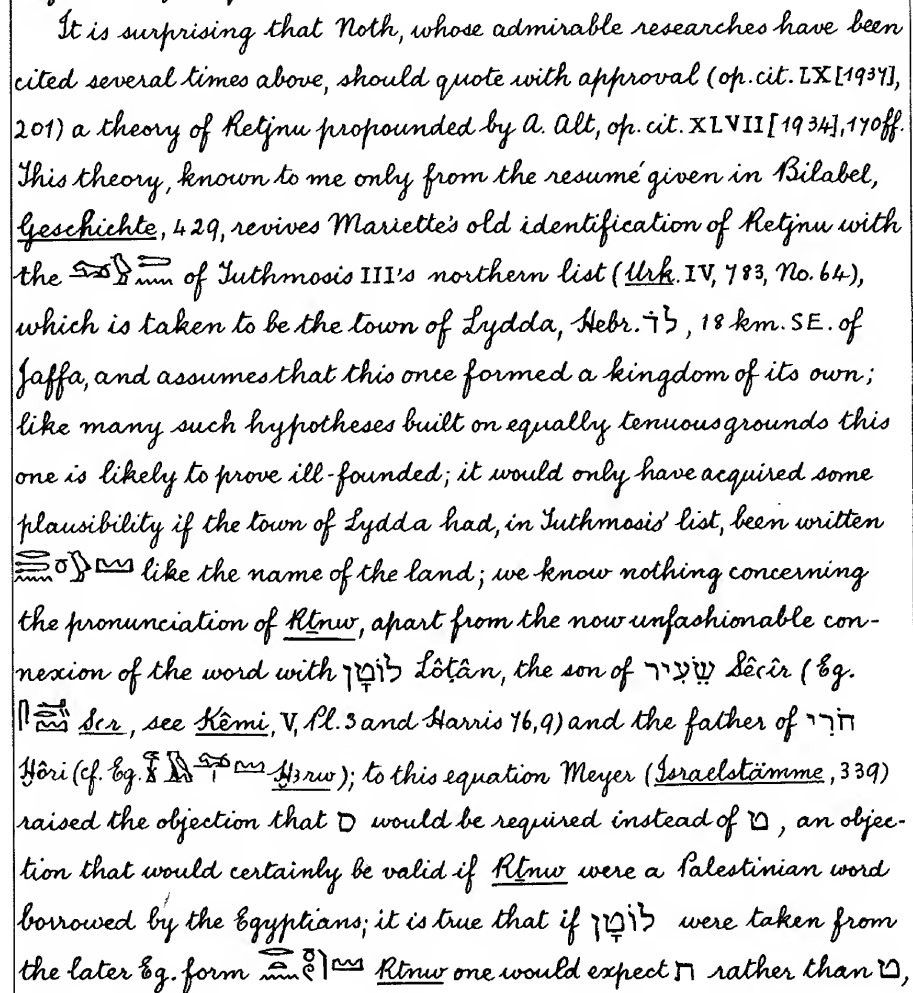 It is surprising that Noth, whose admirable researches have been
cited several times above, should quote with approval (op. cit. LX [1937],
201) a theory of Retjnu propounded by A. Alt, op. cit. XLVII [1934], 170 ff.
This theory, known to me only from the resumé given in Bilabel,
Geschichte, 429, revives Mariette's old identification of Retjnu with
the of Tuthmosis III's northern list (Urk. IV, 783, No. 64),
which is taken to be the town of Lydda, Hebr. לֹד, 18 km. SE. of
Jaffa, and assumes that this once formed a kingdom of its own;
like many such hypotheses built on equally tenuous grounds this
one is likely to prove ill-founded; it would only have acquired some
plausibility if the town of Lydda had, in Tuthmosis' list, been written
like the name of the land; we know nothing concerning
the pronunciation of Rṯnw, apart from the now unfashionable con-
nexion of the word with לוֹטָן Lôṭân, the son of שֵׂעִיר Sēcîr (Eg.
Scr, see Kêmi, V, Pl. 3 and Harris 76, 9) and the father of חֹרִי
Ḥôri (cf. Eg. Ḫꜣrw); to this equation Meyer (Israelstämme, 339)
raised the objection that ס would be required instead of ט, an objec-
tion that would certainly be valid if Rṯnw were a Palestinian word
borrowed by the Egyptians; it is true that if לוֹטָן were taken from
the later Eg. form Rtnw one would expect ת rather than ט,